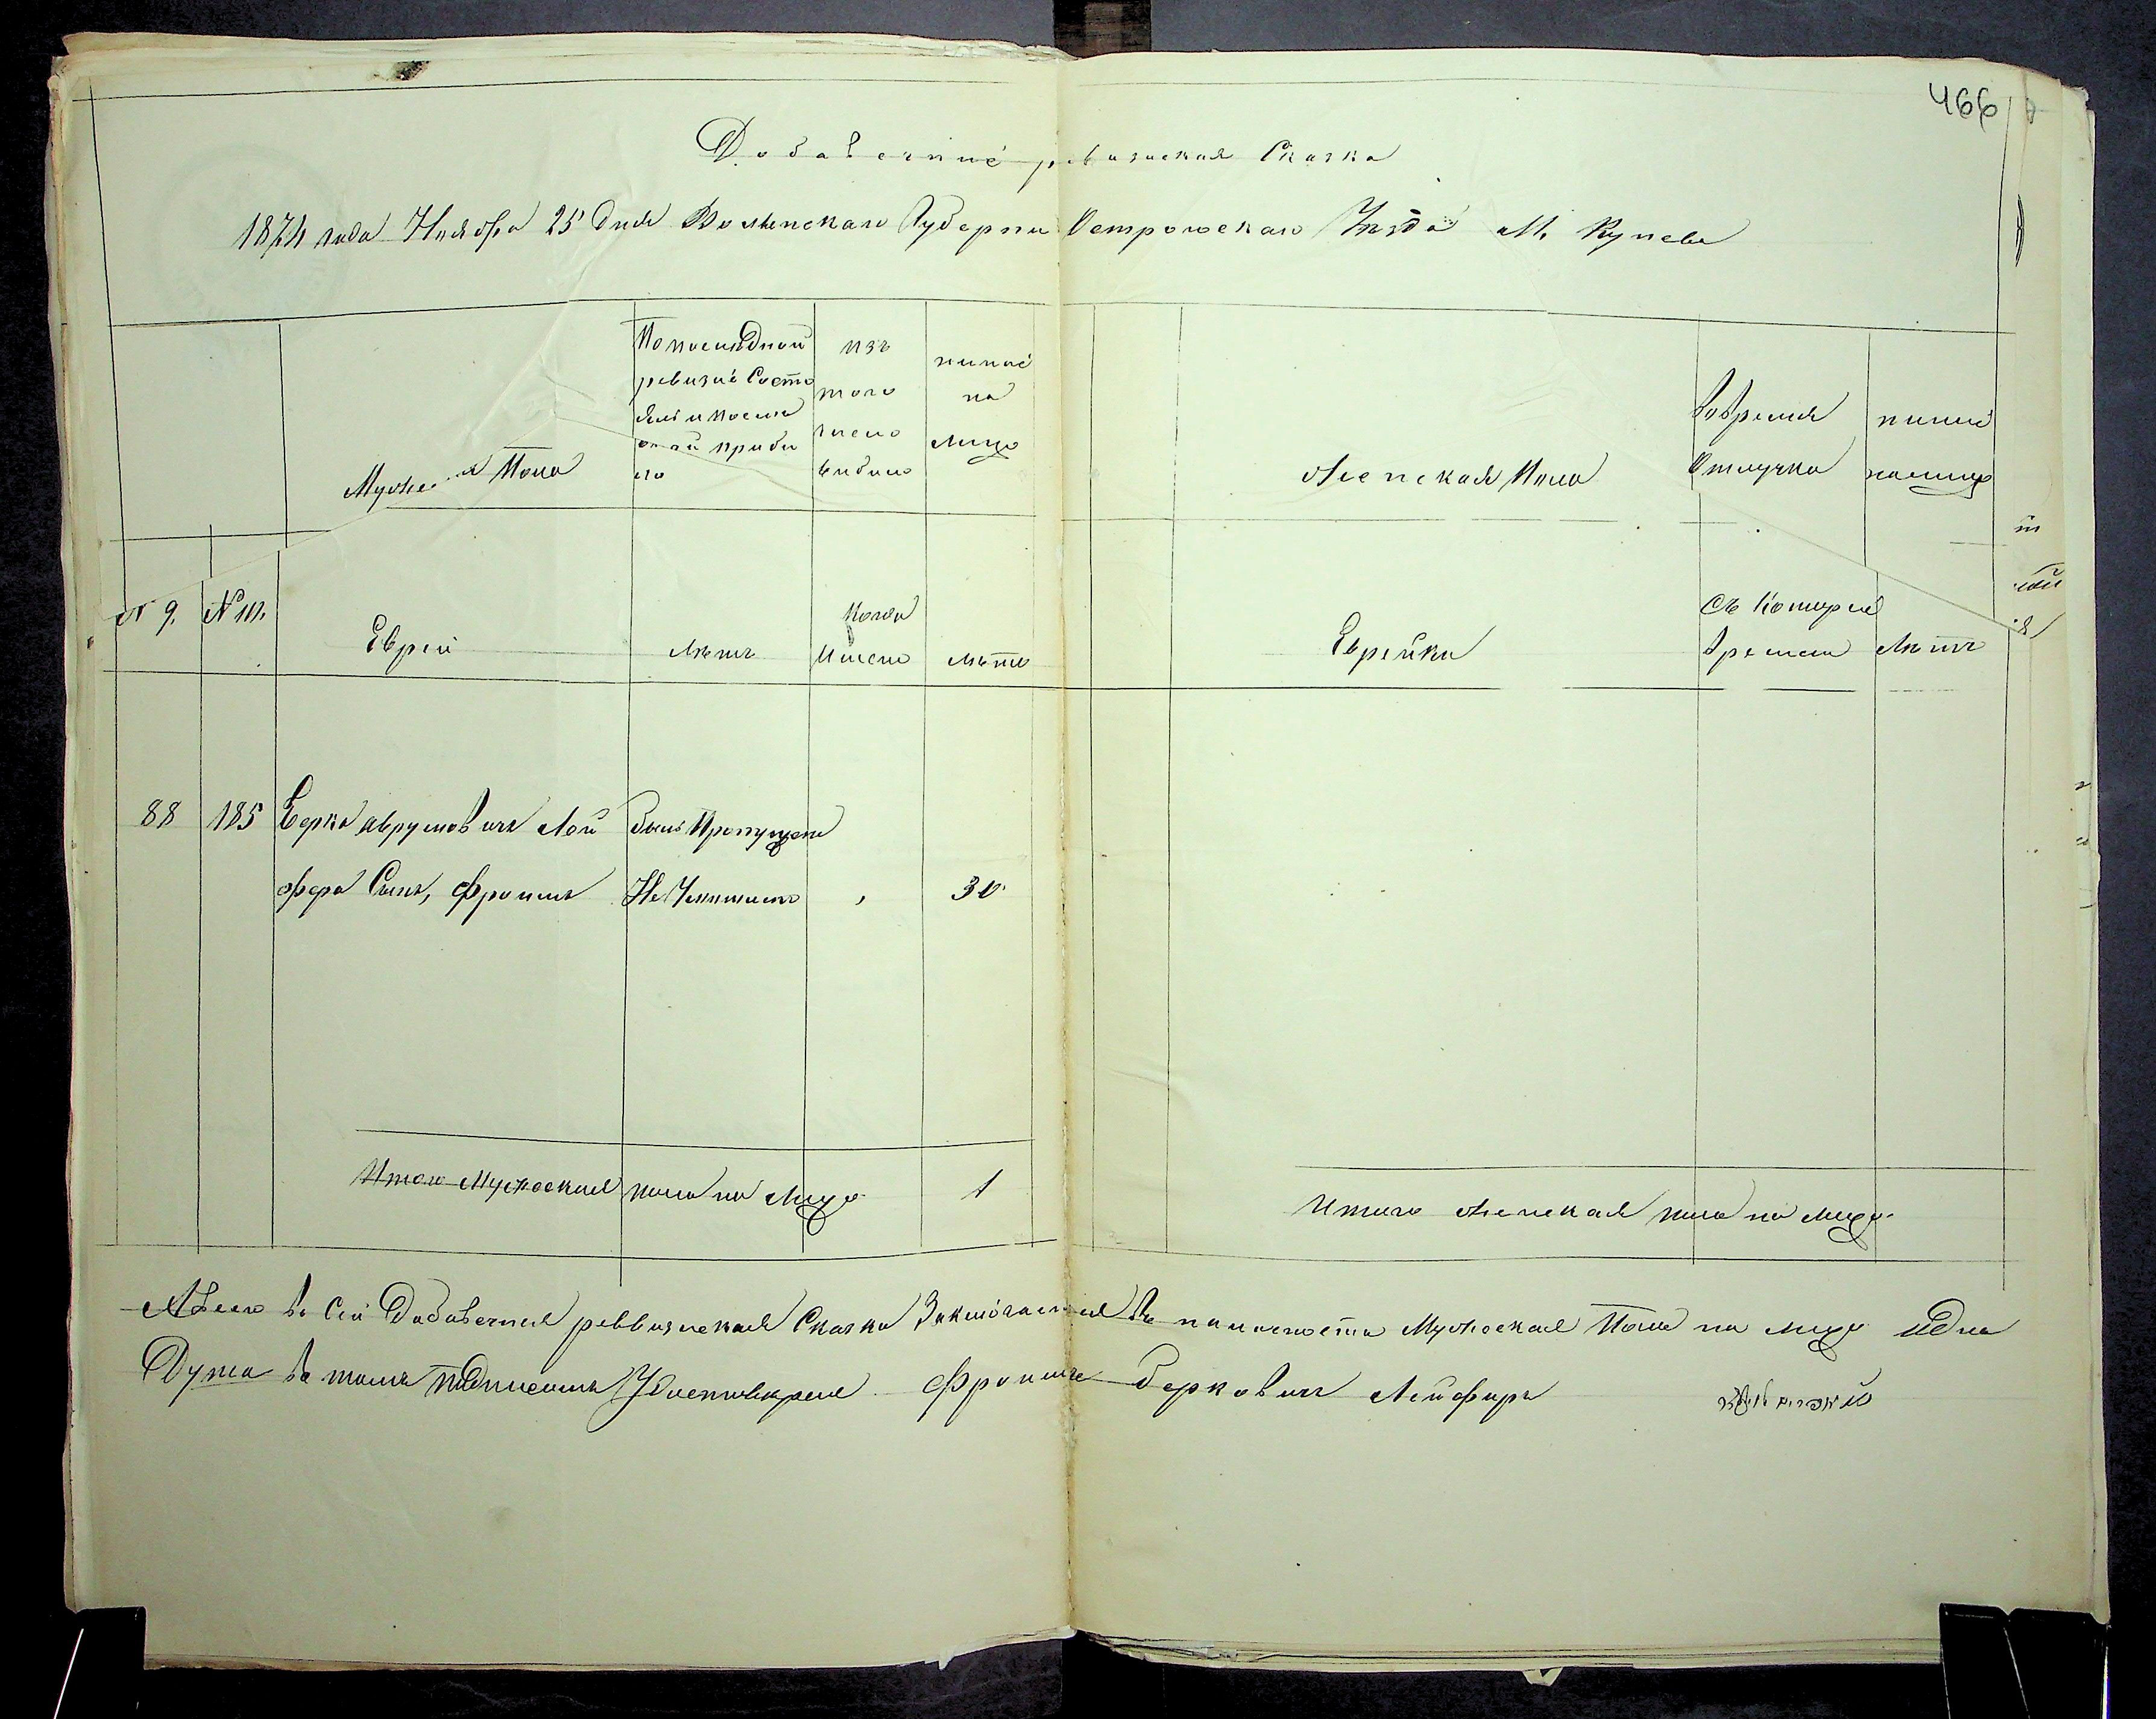 466
Добавочние ревизская Сказка
1874 года Ноября 25 дня Волынскаго Губерни Острожскаго Уезда М. Кунева
Мужска Пола
По последной ревизие Состоял и после оной прибыло
изъ того числа выбыло
ныне на лицо
Женская Пола
Вовремя Отлучка
ныне налицо
№ 9. №10.
Еврей
Летъ
Когда Имено
Лета
Еврейки
Съ Которие времени
Летъ
88 185 Берка Аврумовичъ Лей Былъ Пропущени
фера Сынъ, Фроимъ Не Чытано , 30
Итого Мужская пола на Лицо 1
Итого Женская пола на Лицо
А Всего въ Сей Добавочная реввизская Сказка Заключается въ наличности Мужская Пола на лицо Една
Душа въ томъ подписомъ Удостоверяю Фроимъ Берковичъ Лейферъ